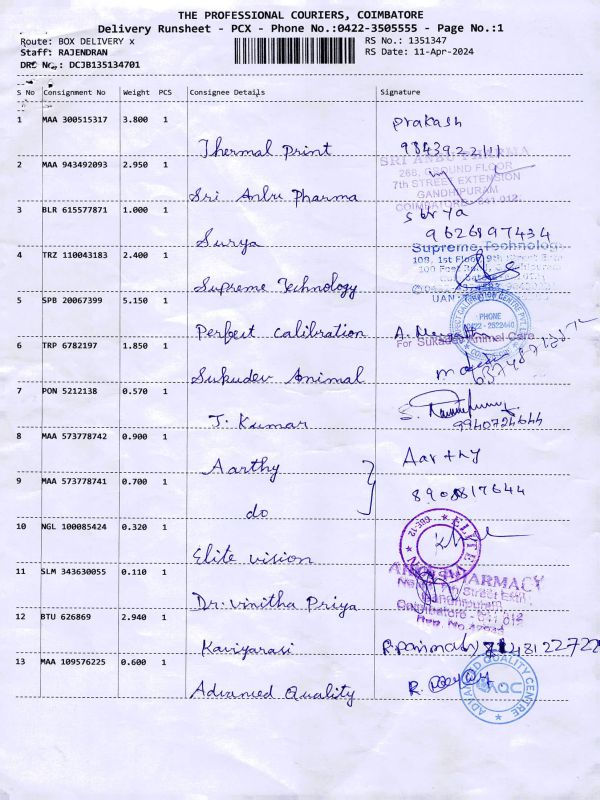 THE PROFESSIONAL COURIERS, COIMBATORE
Delivery Runsheet - PCX - Phone No.:0422-3505555 - Page No.:1
Route: BOX DELIVERY x
RS No.: 1351347
Staff: RAJENDRAN
RS Date: 11-Apr-2024
DRS No.: DCJB135134701
S No Consignment No Weight PCS Consignee Details Signature
1 MAA 300515317 3.800 1 Thermal Print Prakash
984392211
2 MAA 943492093 2.950 1 Sri Anbu Pharma
SRI ANBU PHARMA
268, GROUND FLOOR
7th STREET EXTENSION
GANDHIPURAM
COIMBATORE - 641 012.
3 BLR 615577871 1.000 1 Surya Surya
9626897434
4 TRZ 110043183 2.400 1 Supreme Technology
Supreme Technology
108, 1st Floor, 9th Street Extn
100 Feet Road, Gandhipuram
UAN
5 SPB 20067399 5.150 1 Perfect calibration
PHONE
0422 - 2522440
6 TRP 6782197 1.850 1 Sukudev Animal
For Sukudev Animal Care
7 PON 5212138 0.570 1 J. Kumar
9940724644
8 MAA 573778742 0.900 1 Aarthy Aarthy
8908817644
9 MAA 573778741 0.700 1 do
10 NGL 100085424 0.320 1 Elite vision
ELITE
CBE-12
11 SLM 343630055 0.110 1 Dr. Vinitha Priya
PHARMACY
Street Extn
Gandhipuram
Coimbatore - 641 012
12 BTU 626869 2.940 1 Kaviyarasi
8122722
13 MAA 109576225 0.600 1 Advanced Quality
ADVANCED QUALITY CENTRE
AQC